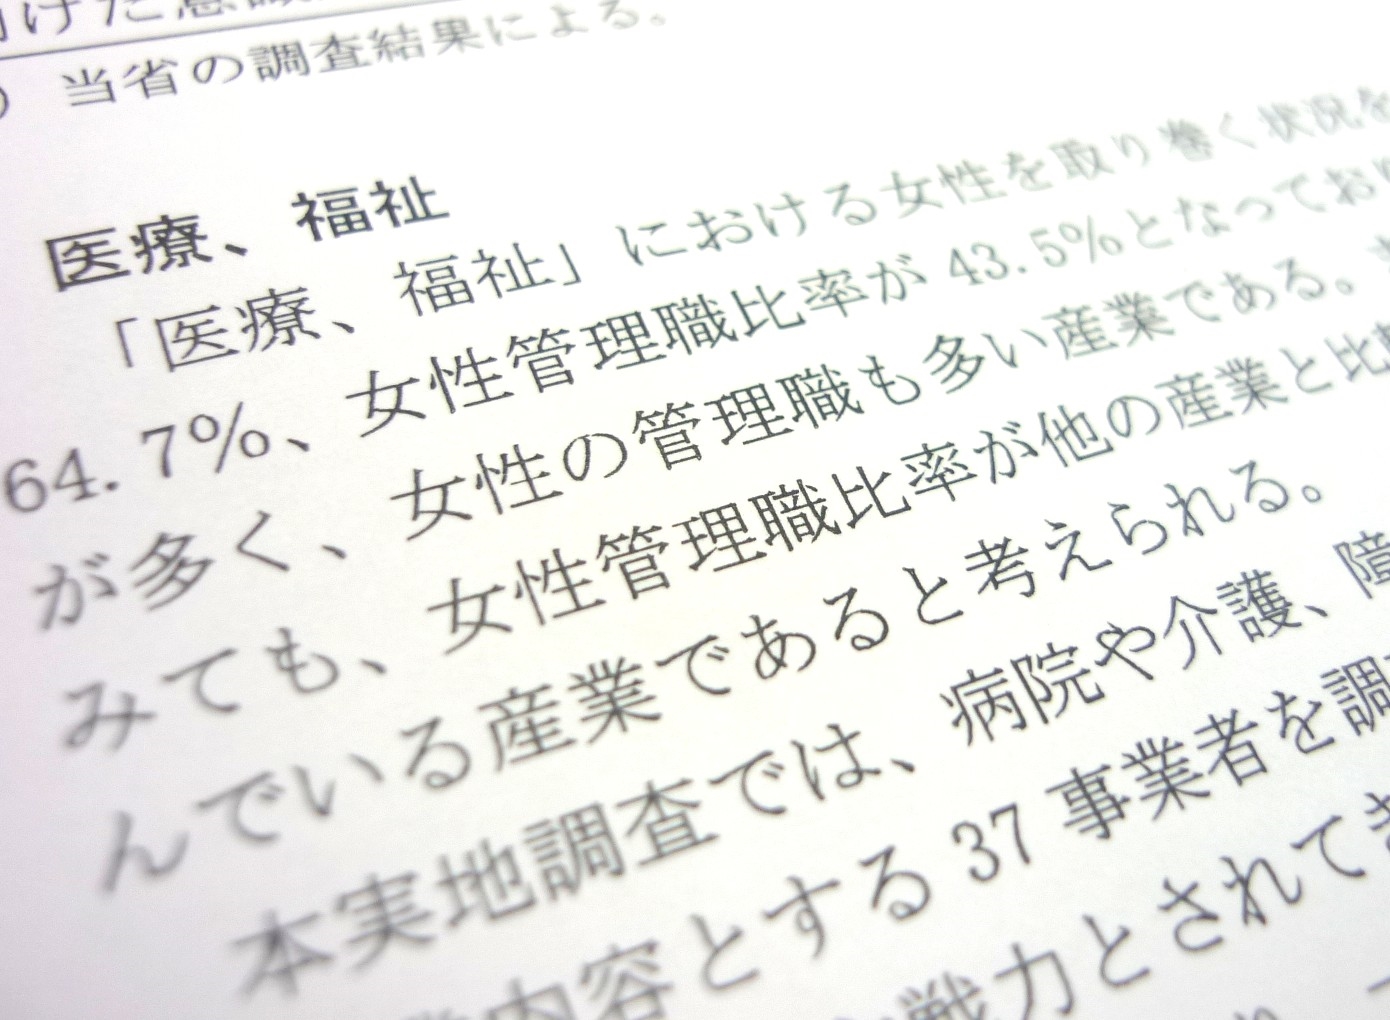 けた意識
) 当省の調査結果による。
医療、福祉
「医療、福祉」における女性を取り巻く状況を
64.7%、女性管理職比率が 43.5%となってお
が多く、女性の管理職も多い産業である。
みても、女性管理職比率が他の産業と比
んでいる産業であると考えられる。
本実地調査では、病院や介護、障
内容とする 37 事業者を調
戦力とされて